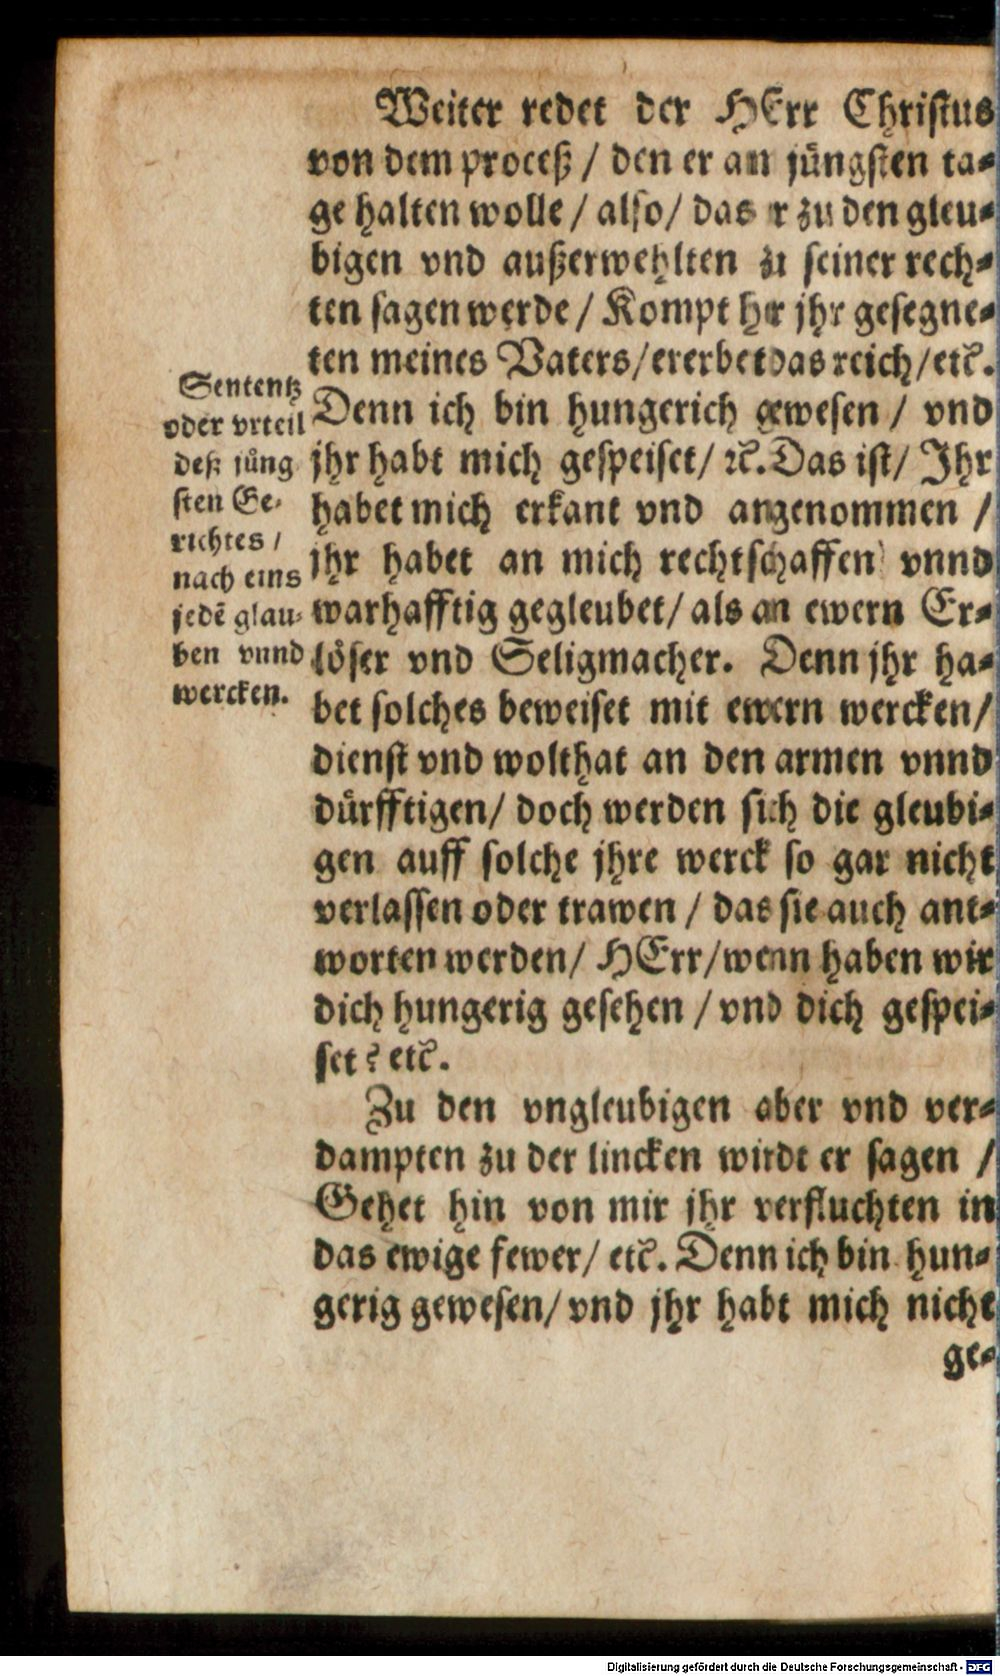 Weiter redet der HErr Christus
von dem proceß / den er am jüngsten ta-
ge halten wolle / also / das er zu den gleu-
bigen vnd außerwehlten zu seiner rech-
ten sagen werde / Kompt her jhr gesegne-
ten meines Vaters / ererbet das reich / etc̃.
Denn ich bin hungerich gewesen / vnd
jhr habt mich gespeiset / ꝛc̃. Das ist / Jhr
habet mich erkant vnd angenommen /
jhr habet an mich rechtschaffen vnnd
warhafftig gegleubet / als an ewern Er-
löser vnd Seligmacher. Denn jhr ha-
bet solches beweiset mit ewern wercken /
dienst vnd wolthat an den armen vnnd
dürfftigen / doch werden sich die gleubi-
gen auff solche jhre werck so gar nicht
verlassen oder trawen / das sie auch ant-
worten werden / HErr / wenn haben wir
dich hungerig gesehen / vnd dich gespei-
set? etc̃.
Zu den vngleubigen aber vnd ver-
dampten zu der lincken wirdt er sagen /
Gehet hin von mir jhr verfluchten in
das ewige fewer / etc̃. Denn ich bin hun-
gerig gewesen / vnd jhr habt mich nicht
ge-
Sententz
oder vrteil
deß jüng
sten Ge-
richtes /
nach eins
jedē glau-
ben vnnd
wercken.
Digitalisierung gefördert durch die Deutsche Forschungsgemeinschaft - DFG